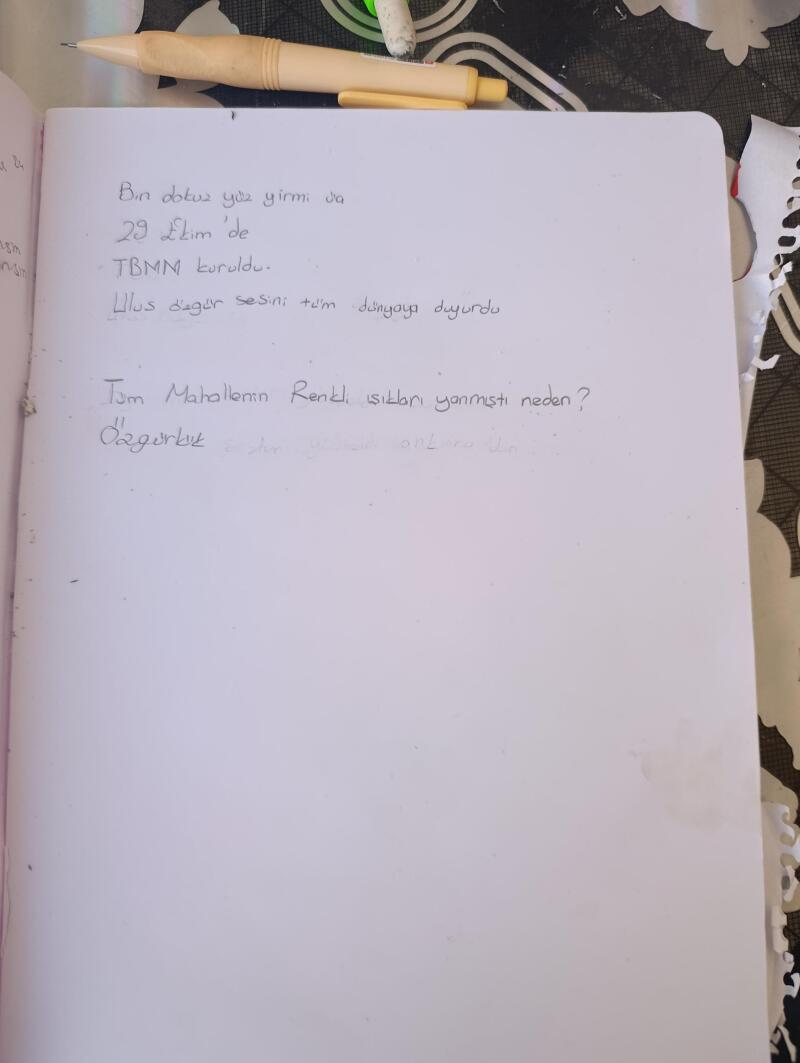 Bin dokuz yüz yirmi üa
29 Ekim 'de
TBMM kuruldu.
Ulus özgür sesini tüm dünyaya duyurdu
Tüm Mahallenin Renkli ışıkları yanmıştı neden?
Özgürlük